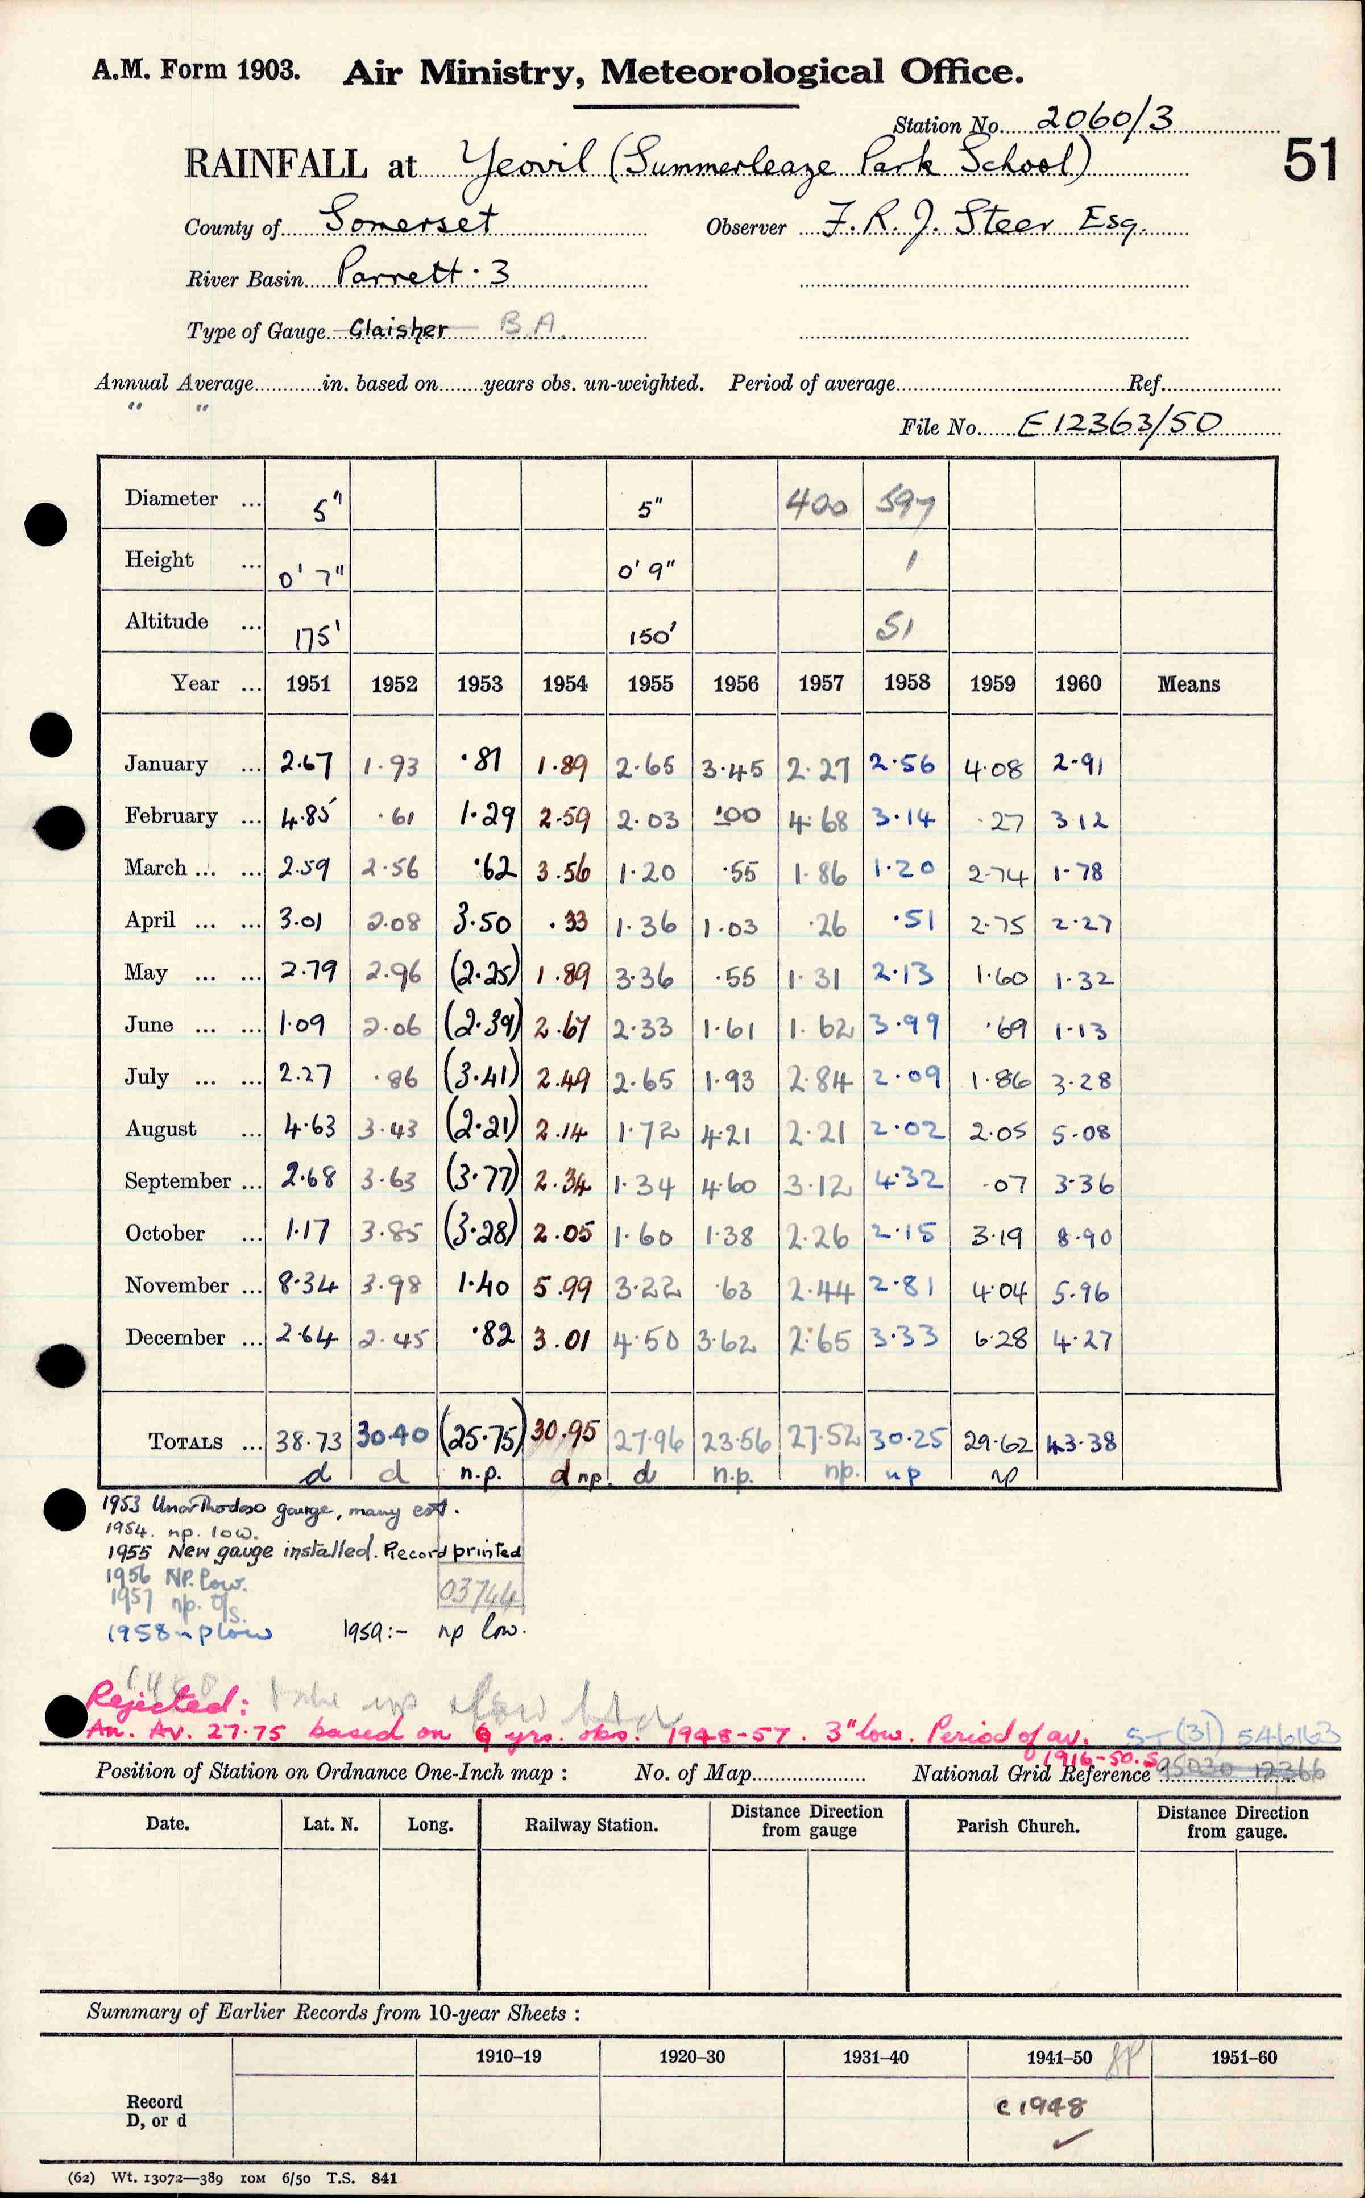 A.M. Form 1903. Air Ministry, Meteorological Office.
Station No. 2060/3
51
RAINFALL at Yeovil (Summerleaze Park School)
County of Somerset Observer F. R. J. Steer Esq.
River Basin Parrett. 3
Type of Gauge Glaisher B.A.
Annual Average in. based on years obs. un-weighted. Period of average Ref.
" "
File No. E12363/50
Diameter ... 5" 5" 400 597
Height ... 0' 7" 0' 9" 1
Altitude ... 175' 150' 51
Year ... 1951 1952 1953 1954 1955 1956 1957 1958 1959 1960 Means
January ... 2.67 1.93 .81 1.89 2.65 3.45 2.27 2.56 4.08 2.91
February ... 4.85 .61 1.29 2.59 2.03 .00 4.68 3.14 .27 3.12
March ... ... 2.59 2.56 .62 3.56 1.20 .55 1.86 1.20 2.74 1.78
April ... ... 3.01 2.08 3.50 .33 1.36 1.03 .26 .51 2.75 2.27
May ... ... 2.79 2.96 (2.25) 1.89 3.36 .55 1.31 2.13 1.60 1.32
June ... ... 1.09 2.06 (2.39) 2.67 2.33 1.61 1.62 3.99 .69 1.13
July ... ... 2.27 .86 (3.41) 2.49 2.65 1.93 2.84 2.09 1.86 3.28
August ... 4.63 3.43 (2.21) 2.14 1.72 4.21 2.21 2.02 2.05 5.08
September ... 2.68 3.63 (3.77) 2.34 1.34 4.60 3.12 4.32 .07 3.36
October ... 1.17 3.85 (3.28) 2.05 1.60 1.38 2.26 2.15 3.19 8.90
November ... 8.34 3.98 1.40 5.99 3.22 .63 2.44 2.81 4.04 5.96
December ... 2.64 2.45 .82 3.01 4.50 3.62 2.65 3.33 6.28 4.27
TOTALS ... 38.73 30.40 (25.75) 30.95 27.96 23.56 27.52 30.25 29.62 43.38
d d n.p. d np. d n.p. np. np np
1953 Unorthodox gauge, many est.
1954. np. low.
1955 New gauge installed. Record printed
1956 NP. low.
03744
1957 np. o/s.
1958 np low 1959:- np low.
Rejected:
An. Av. 27.75 based on 9 yrs. obs. 1948-57. 3" low. Period of av. 1916-50.
ST (31) 546163
Position of Station on Ordnance One-Inch map : No. of Map National Grid Reference 95030 12366
Date. Lat. N. Long. Railway Station. Distance Direction from gauge Parish Church. Distance Direction from gauge.
Summary of Earlier Records from 10-year Sheets :
1910–19 1920–30 1931–40 1941–50 1951–60
Record
D, or d
c 1948
(62) Wt. 13072—389 10M 6/50 T.S. 841